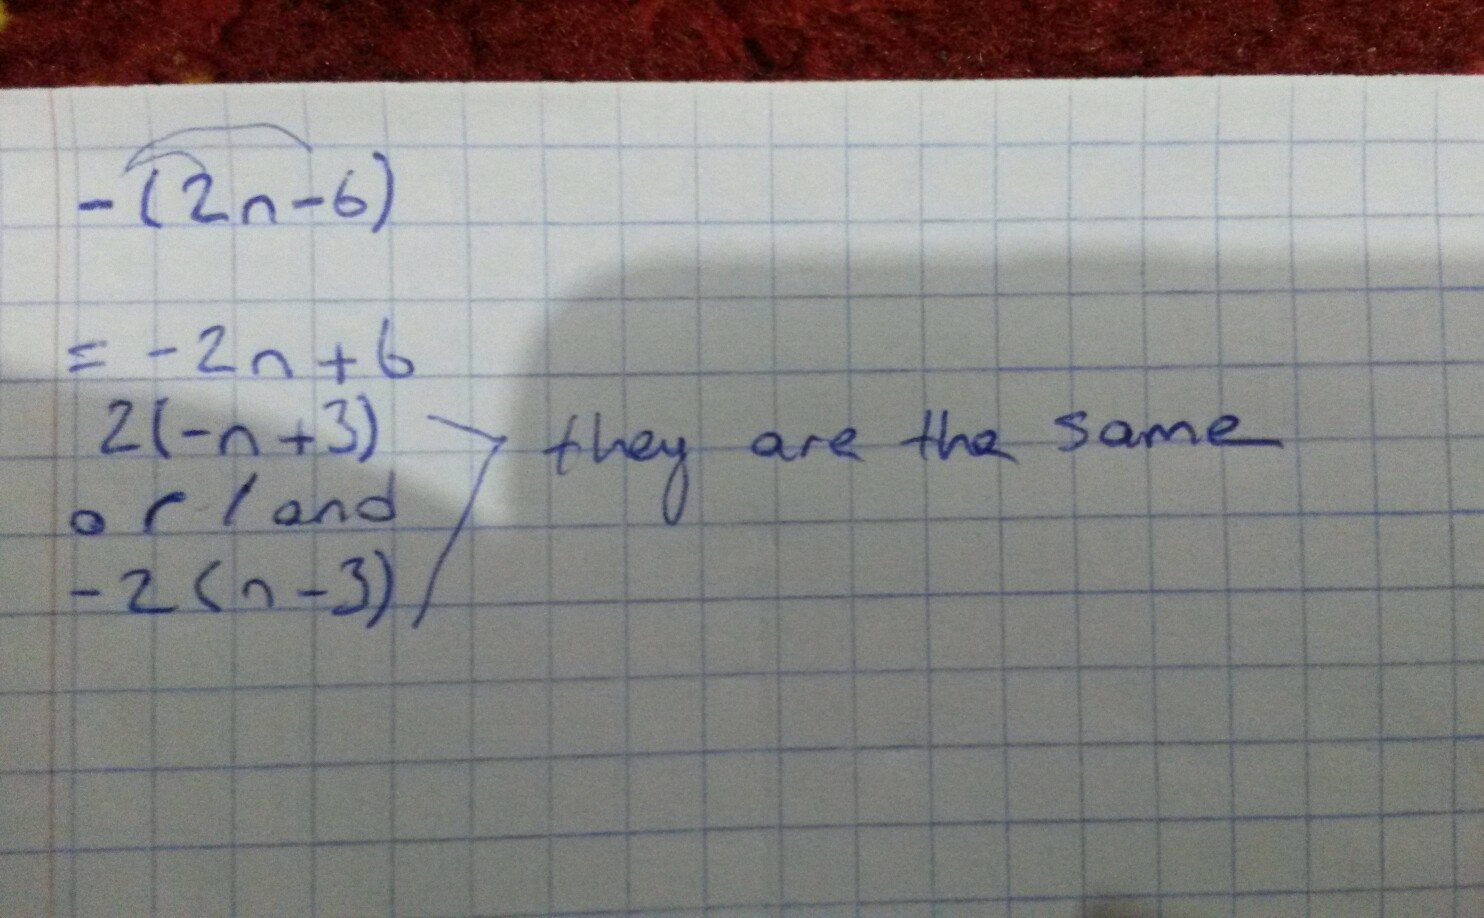 -(2n-6)
= -2n+6
2(-n+3)
or/and
-2(n-3)
they are the same